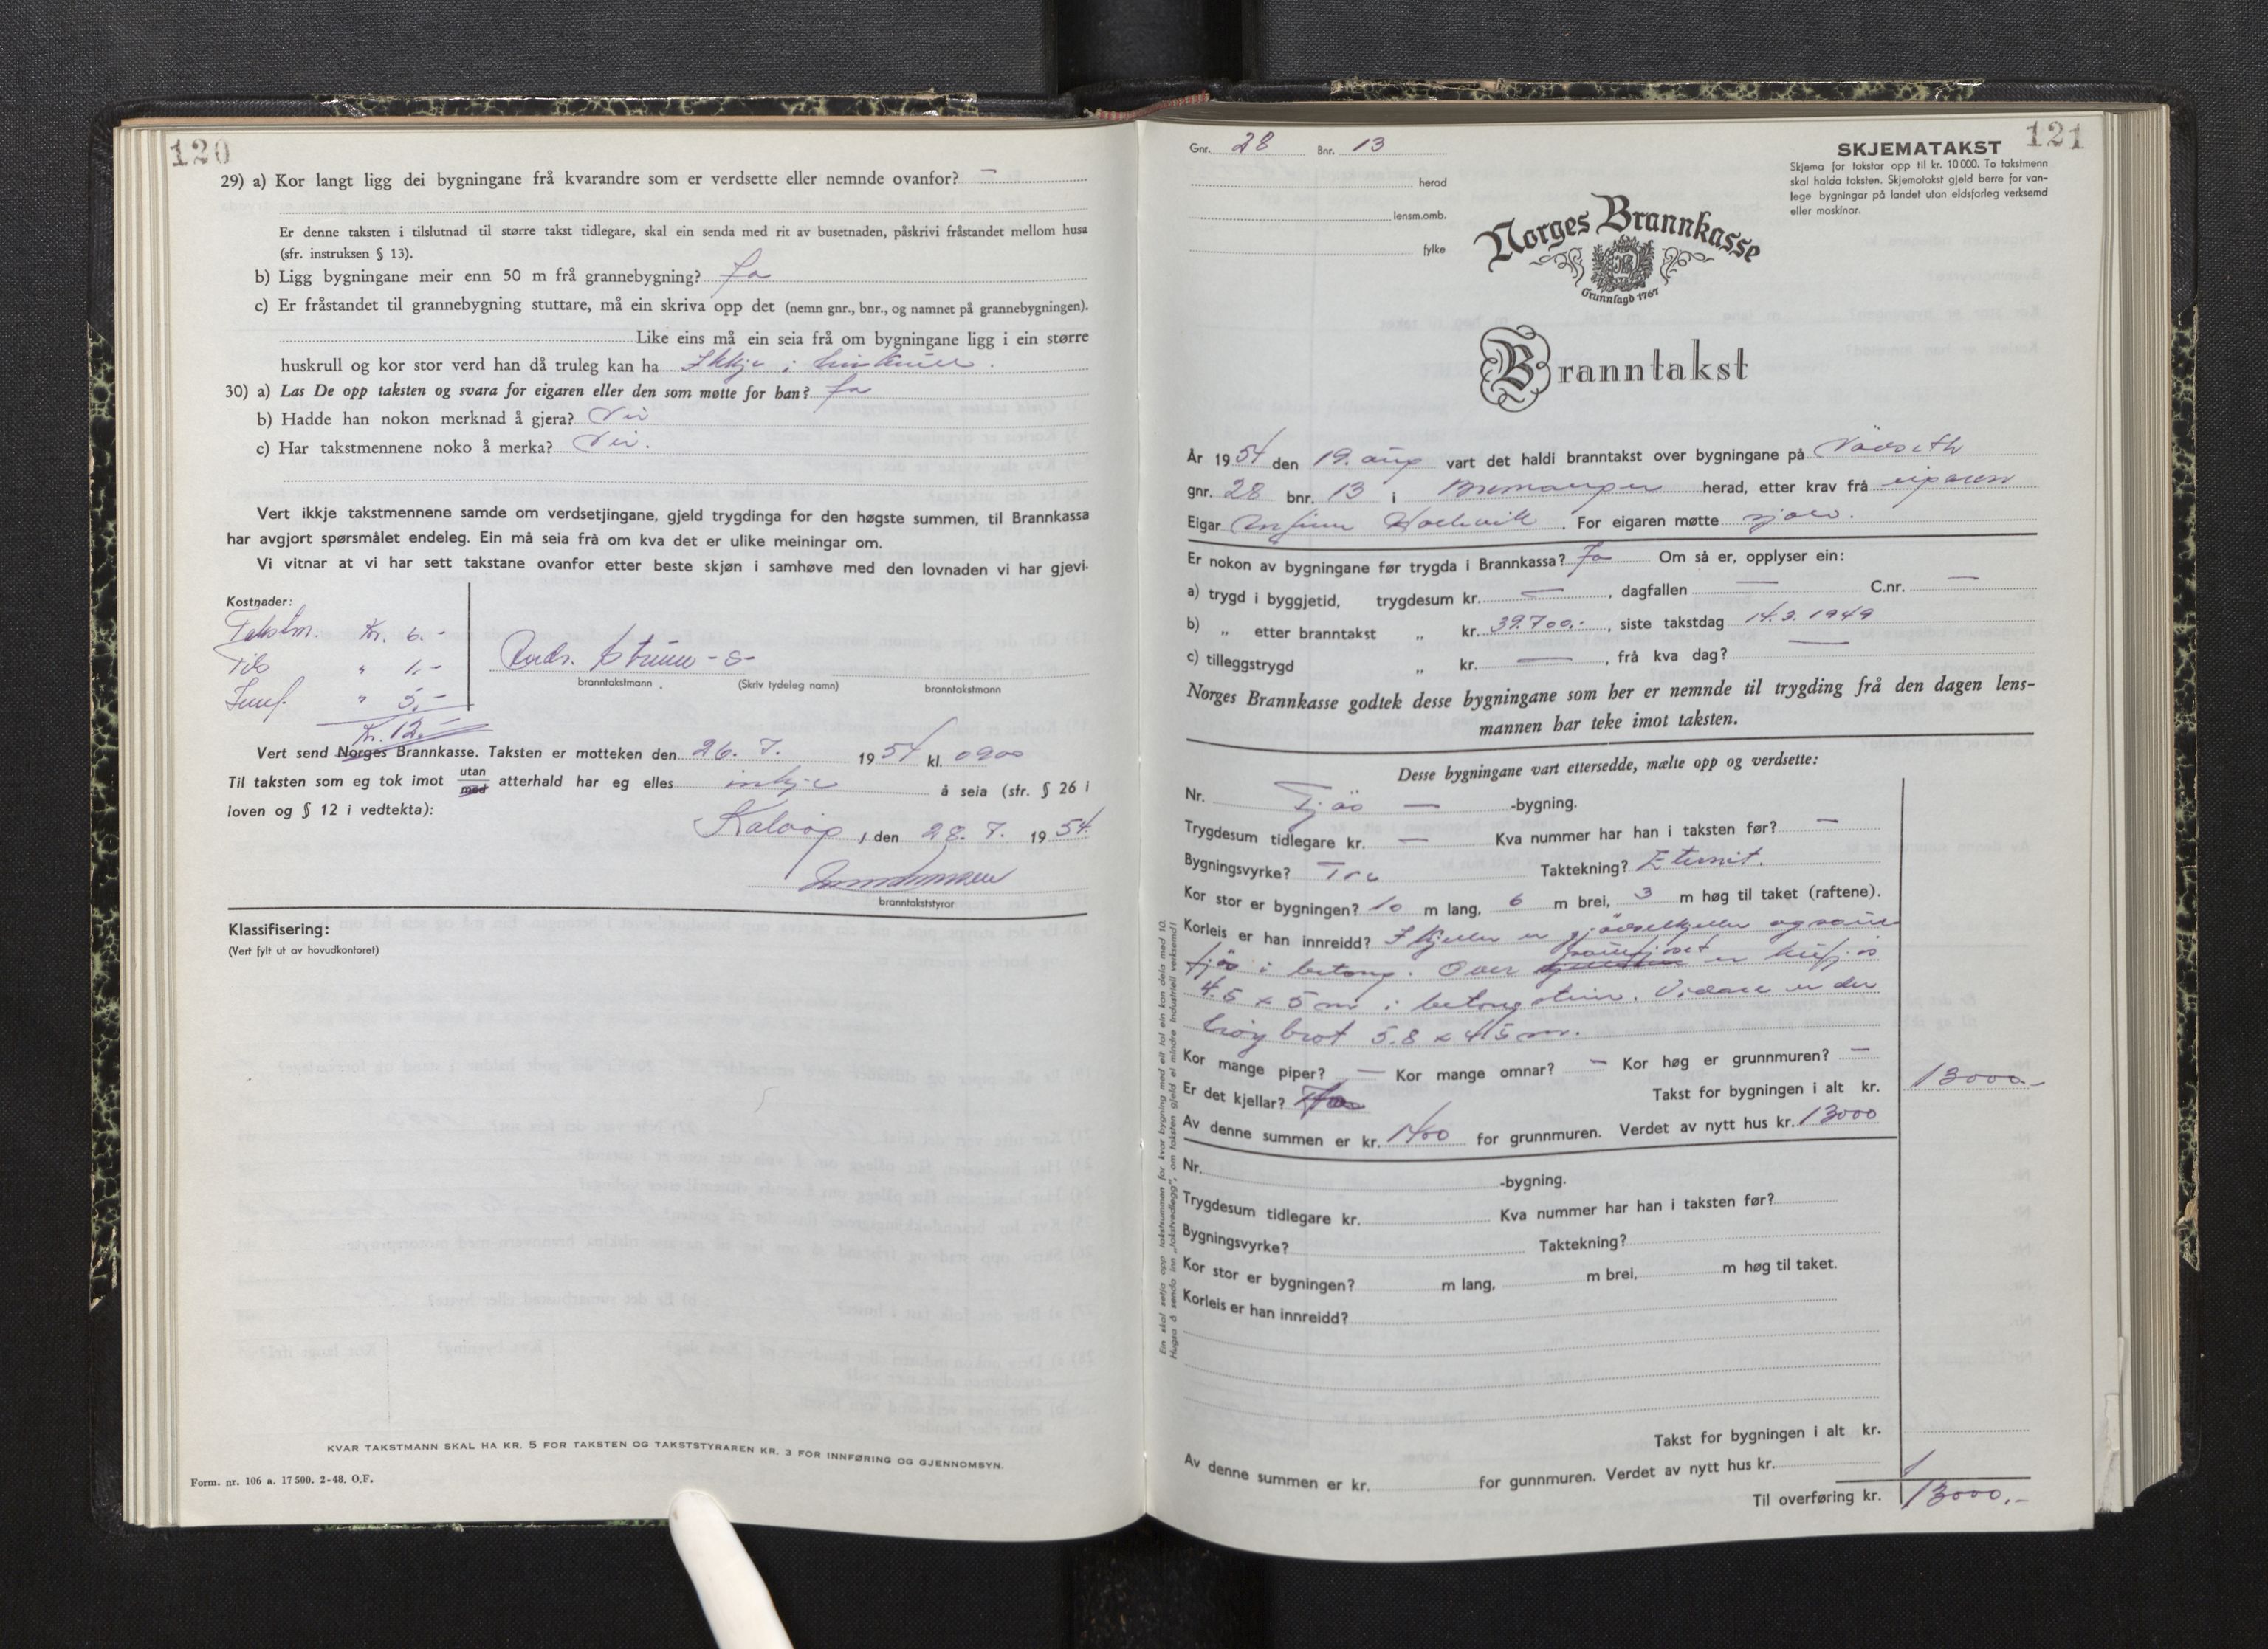 120
29) a) Kor langt ligg dei bygningane frå kvarandre som er verdsette eller nemnde ovanfor? —
Er denne taksten i tilslutnad til større takst tidlegare, skal ein senda med rit av busetnaden, påskrivi fråstandet mellom husa
(sfr. instruksen § 13).
b) Ligg bygningane meir enn 50 m frå grannebygning? Ja
c) Er fråstandet til grannebygning stuttare, må ein skriva opp det (nemn gnr., bnr., og namnet på grannebygningen).
Like eins må ein seia frå om bygningane ligg i ein større
huskrull og kor stor verd han då truleg kan ha Ikkje i huskrull.
30) a) Las De opp taksten og svara for eigaren eller den som møtte for han? Ja
b) Hadde han nokon merknad å gjera? Nei
c) Har takstmennene noko å merka? Nei.
Vert ikkje takstmennene samde om verdsetjingane, gjeld trygdinga for den høgste summen, til Brannkassa
har avgjort spørsmålet endeleg. Ein må seia frå om kva det er ulike meiningar om.
Vi vitnar at vi har sett takstane ovanfor etter beste skjøn i samhøve med den lovnaden vi har gjevi.
Kostnader:
Takstm. Kr. 6.-
" 1.-
Innf. " 5.-
Kr. 12.-
branntakstmann. (Skriv tydeleg namn) branntakstmann
Vert send Norges Brannkasse. Taksten er motteken den 26. 7. 1954 kl. 0900
Til taksten som eg tok imot utan/med atterhald har eg elles inkje å seia (sfr. § 26 i
loven og § 12 i vedtekta):
Kalvåg, den 28. 7. 1954
branntakststyrar
Klassifisering:
(Vert fylt ut av hovudkontoret)
KVAR TAKSTMANN SKAL HA KR. 5 FOR TAKSTEN OG TAKSTSTYRAREN KR. 3 FOR INNFØRING OG GJENNOMSYN.
Form. nr. 106 a. 17 500. 2-48. O.F.
121
Gnr. 28 Bnr. 13
herad
lensm.omb.
fylke
SKJEMATAKST
Skjema for takstar opp til kr. 10 000. To takstmenn
skal halda taksten. Skjematakst gjeld berre for van-
lege bygningar på landet utan eldsfarleg verksemd
eller maskinar.
Norges Brannkasse
Grunnlagd 1767
Branntakst
År 1954 den 19. aug vart det haldi branntakst over bygningane på
gnr. 28 bnr. 13 i Bremanger herad, etter krav frå eigaren
Eigar . For eigaren møtte sjølv.
Er nokon av bygningane før trygda i Brannkassa? Ja Om så er, opplyser ein:
a) trygd i byggjetid, trygdesum kr. —, dagfallen — C.nr. —
b) „ etter branntakst „ kr. 39.700.-, siste takstdag 14.3.1949
c) tilleggstrygd „ kr. —, frå kva dag? —
Norges Brannkasse godtek desse bygningane som her er nemnde til trygding frå den dagen lens-
mannen har teke imot taksten.
Desse bygningane vart ettersedde, mælte opp og verdsette:
Nr. Fjøs — -bygning.
Trygdesum tidlegare kr. — Kva nummer har han i taksten før? —
Bygningsvyrke? Tre Taktekning? Eternit.
Kor stor er bygningen? 10 m lang, 6 m brei, 3 m høg til taket (raftene).
Korleis er han innreidd? I kjeller er gjødselkjeller og saue
fjøs i betong. Over sauefjøset er kufjøs
4.5 x 5 m i betongstein. Vidare er der
høybrot 5.8 x 4.5 m.
Kor mange piper? — Kor mange omnar? — Kor høg er grunnmuren? —
Er det kjellar? Ja Takst for bygningen i alt kr. 13000.-
Av denne summen er kr. 1400 for grunnmuren. Verdet av nytt hus kr. 13000
Nr. -bygning.
Trygdesum tidlegare kr. Kva nummer har han i taksten før?
Bygningsvyrke? Taktekning?
Kor stor er bygningen? m lang, m brei, m høg til taket.
Korleis er han innreidd?
Takst for bygningen i alt kr.
Av denne summen er kr. for gunnmuren. Verdet av nytt hus kr.
Til overføring kr. 13000.-
Ein skal setja opp takstsummen for kvar bygning med eit tal ein kan dela med 10.
Hugsa å senda inn „takstvedlegg", om taksten gjeld ei mindre industriell verksemd!